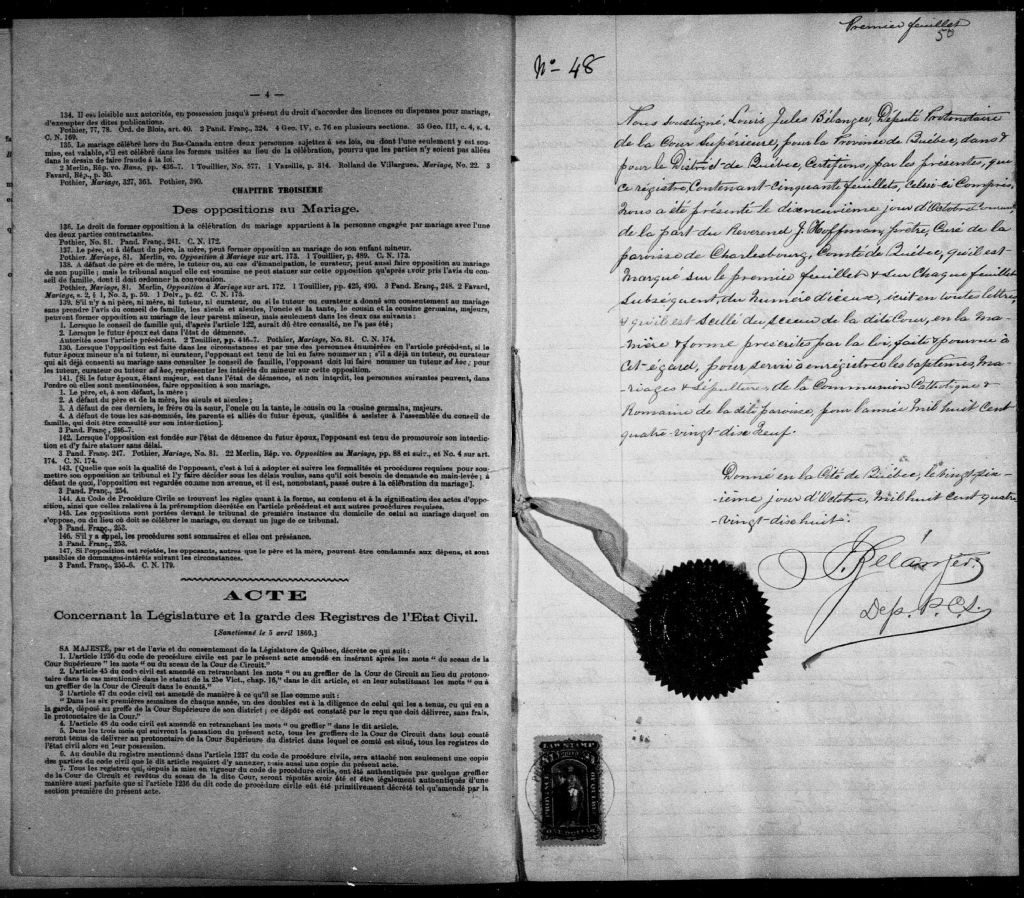 — 4 —
134. Il est loisible aux autorités, en possession jusqu'à présent du droit d'accorder des licences ou dispenses pour mariage,
d'exempter des dites publications.
Pothier, 77, 78. Ord. de Blois, art. 40. 2 Pand. Franç., 324. 4 Geo. IV, c. 76 en plusieurs sections. 35 Geo. III, c. 4, s. 4.
C. N. 169.
135. Le mariage célébré hors du Bas-Canada entre deux personnes sujettes à ses lois, ou dont l'une seulement y est sou-
mise, est valable, s'il est célébré dans les formes usitées au lieu de la célébration, pourvu que les parties n'y soient pas allées
dans le dessin de faire fraude à la loi.
2 Merlin, Rép. vo. Bans, pp. 436-7. 1 Touillier, No. 577. 1 Vazeille, p. 314. Rolland de Villargues. Mariage, No. 22. 3
Favard, Rép., p. 30.
Pothier, Mariage, 327, 363. Pothier, 390.
CHAPITRE TROISIÈME
Des oppositions au Mariage.
136. Le droit de former opposition à la célébration du mariage appartient à la personne engagée par mariage avec l'une
des deux parties contractantes.
Pothier, No. 81. Pand. Franç., 241. C. N. 172.
137. Le père, et à défaut du père, la mère, peut former opposition au mariage de son enfant mineur.
Pothier, Mariage, 81. Merlin, vo. Opposition à Mariage sur art. 173. 1 Touillier, p. 489. C. N. 173.
138. A défaut de père et de mère, le tuteur ou, au cas d'émancipation, le curateur, peut aussi faire opposition au mariage
de son pupille; mais le tribunal auquel elle est soumise ne peut statuer sur cette opposition qu'après avoir pris l'avis du conseil
de famille, dont il doit ordonner la convocation.
Pothier, Mariage, 81. Merlin, Opposition à Mariage sur art. 172. 1 Touillier, pp. 425, 490. 3 Pand. Franç., 248. 2 Favard,
Mariage, s. 2, § 1, No. 3, p. 59. 1 Delv., p. 62. C. N. 175.
139. S'il n'y a ni père, ni mère, ni tuteur, ni curateur, ou si le tuteur ou curateur a donné son consentement au mariage
sans prendre l'avis du conseil de famille, les aïeuls et aïeules, l'oncle et la tante, le cousin et la cousine germains, majeurs,
peuvent former opposition au mariage de leur parent mineur, mais seulement dans les deux cas suivants:
1. Lorsque le conseil de famille qui, d'après l'article 122, aurait dû être consulté, ne l'a pas été;
2. Lorsque le futur époux est dans l'état de démence.
Autorités sous l'article précédent. 2 Touillier, pp. 446-7. Pothier, Mariage, No. 81. C. N. 174.
130. Lorsque l'opposition est faite dans les circonstances et par une des personnes énoncées en l'article précédent, si le
futur époux mineur n'a ni tuteur, ni curateur, l'opposant est tenu de lui en faire nommer un; s'il a déjà un tuteur, ou curateur
qui ait déjà consenti au mariage sans consulter le conseil de famille, l'opposant doit lui faire nommer un tuteur ad hoc; pour
les tuteur, curateur ou tuteur ad hoc, représenter les intérêts du mineur sur cette opposition.
141. [Si le futur époux, étant majeur, est dans l'état de démence, et non interdit, les personnes suivantes peuvent, dans
l'ordre où elles sont mentionnées, faire opposition à son mariage.
1. Le père, et, à son défaut, la mère;
2. A défaut du père et de la mère, les aïeuls et aïeules;
3. A défaut de ces derniers, le frère ou la sœur, l'oncle ou la tante, le cousin ou la cousine germains, majeurs.
4. A défaut de tous les sus-nommés, les parents et alliés du futur époux, qualifiés à assister à l'assemblée du conseil de
famille, qui doit être consulté sur son interdiction].
3 Pand. Franç., 246-7.
142. Lorsque l'opposition est fondée sur l'état de démence du futur époux, l'opposant est tenu de promouvoir son interdic-
tion et d'y faire statuer sans délai.
3 Pand. Franç. 247. Pothier, Mariage, No. 81. 22 Merlin, Rép. vo. Opposition au Mariage, pp. 88 et suiv., et No. 4 sur art.
174. C. N. 174.
143. [Quelque soit la qualité de l'opposant, c'est à lui à adopter et suivre les formalités et procédures requises pour sou-
mettre son opposition au tribunal et l'y faire décider sous les délais voulus, sans qu'il soit besoin de demande en main-levée; à
défaut de quoi, l'opposition est regardée comme non avenue, et il est, nonobstant, passé outre à la célébration du mariage].
3 Pand. Franç., 254.
144. Au Code de Procédure Civile se trouvent les règles quant à la forme, au contenu et à la signification des actes d'oppo-
sition, ainsi que celles relatives à la préremption décrétée en l'article précédent et aux autres procédures requises.
145. Les oppositions sont portées devant le tribunal de première instance du domicile de celui au mariage duquel on
s'oppose, ou du lieu où doit se célébrer le mariage, ou devant un juge de ce tribunal.
3 Pand. Franç., 253.
146. S'il y a appel, les procédures sont sommaires et elles ont préséance.
3 Pand. Franç., 253.
147. Si l'opposition est rejetée, les opposants, autres que le père et la mère, peuvent être condamnés aux dépens, et sont
passibles de dommages-intérêts suivant les circonstances.
3 Pand. Franç., 255-6. C. N. 179.
ACTE
Concernant la Législature et la garde des Registres de l'Etat Civil.
[Sanctionné le 5 avril 1869.]
SA MAJESTÉ, par et de l'avis et du consentement de la Législature de Québec, décrète ce qui suit:
1. L'article 1236 du code de procédure civile est par le présent acte amendé en insérant après les mots "du sceau de la
Cour Supérieure" les mots "ou du sceau de la Cour de Circuit."
2. L'article 45 du code civil est amendé en retranchant les mots "ou au greffier de la Cour de Circuit au lieu du protono-
taire dans le cas mentionné dans le statut de la 25e Vict., chap. 16," dans le dit article, et en leur substituant les mots "ou à
un greffier de la Cour de Circuit dans le comté."
3 L'article 47 du code civil est amendé de manière à ce qu'il se lise comme suit:
"Dans les six premières semaines de chaque année, un des doubles est à la diligence de celui qui les a tenus, ou qui en a
la garde, déposé au greffe de la Cour Supérieure de son district; ce dépôt est constaté par le reçu que doit délivrer, sans frais,
le protonotaire de la Cour."
4. L'article 48 du code civil est amendé en retranchant les mots "ou greffier" dans le dit article.
5. Dans les trois mois qui suivront la passation du présent acte, tous les greffiers de la Cour de Circuit dans tout comté
seront tenus de délivrer au protonotaire de la Cour Supérieure du district dans lequel ce comté est situé, tous les registres de
l'état civil alors en leur possession.
6. Au double du registre mentionné dans l'article 1237 du code de procédure civile, sera attaché non seulement une copie
des parties du code civil que le dit article requiert d'y annexer, mais aussi une copie du présent acte.
7. Tous les registres qui, depuis la mise en vigueur du code de procédure civile, ont été authentiqués par quelque greffier
de la Cour de Circuit et revêtus du sceau de la dite Cour, seront réputés avoir été et être légalement authentiqués d'une
manière aussi parfaite que si l'article 1236 du dit code de procédure civile eût été primitivement décrété tel qu'amendé par la
section première du présent acte.
Premier feuillet
50
No. 48
Nous soussigné, Louis Jules Bélanger, Député Protonotaire
de la Cour Supérieure, pour la Province de Québec, dans &
pour le District de Québec, Certifions, par les présentes, que
ce régistre, Contenant cinquante feuillets, celui-ci Compris,
Nous a été présenté le dixneuvième jour d'Octobre courant,
de la part du Reverend J. Hoffman, prêtre, Curé de la
paroisse de Charlesbourg, Comté de Québec, qu'il est
Marqué sur le premier feuillet & sur Chaque feuillet
Subséquent, du Numéro d'iceux, écrit en toutes lettres,
& qu'il est scellé du sceau de la dite Cour, en la ma-
nière & forme prescrites par la loi, faite & pourvue à
Cet égard, pour servir à enrégistrer les baptêmes, Ma-
riages & Sépultures de la Communion Catholique &
Romaine de la dite paroisse, pour l'année Mil huit Cent
quatre-vingt-dix Neuf.
Donné en la Cité de Québec, le vingt-six-
ième jour d'Octobre, Mil huit Cent quatre
-vingt-dix huit.
J. Bélanger.
Dep. P. C. S.
LAW STAMP
PROVINCE
QUEBEC
ONE DOLLAR